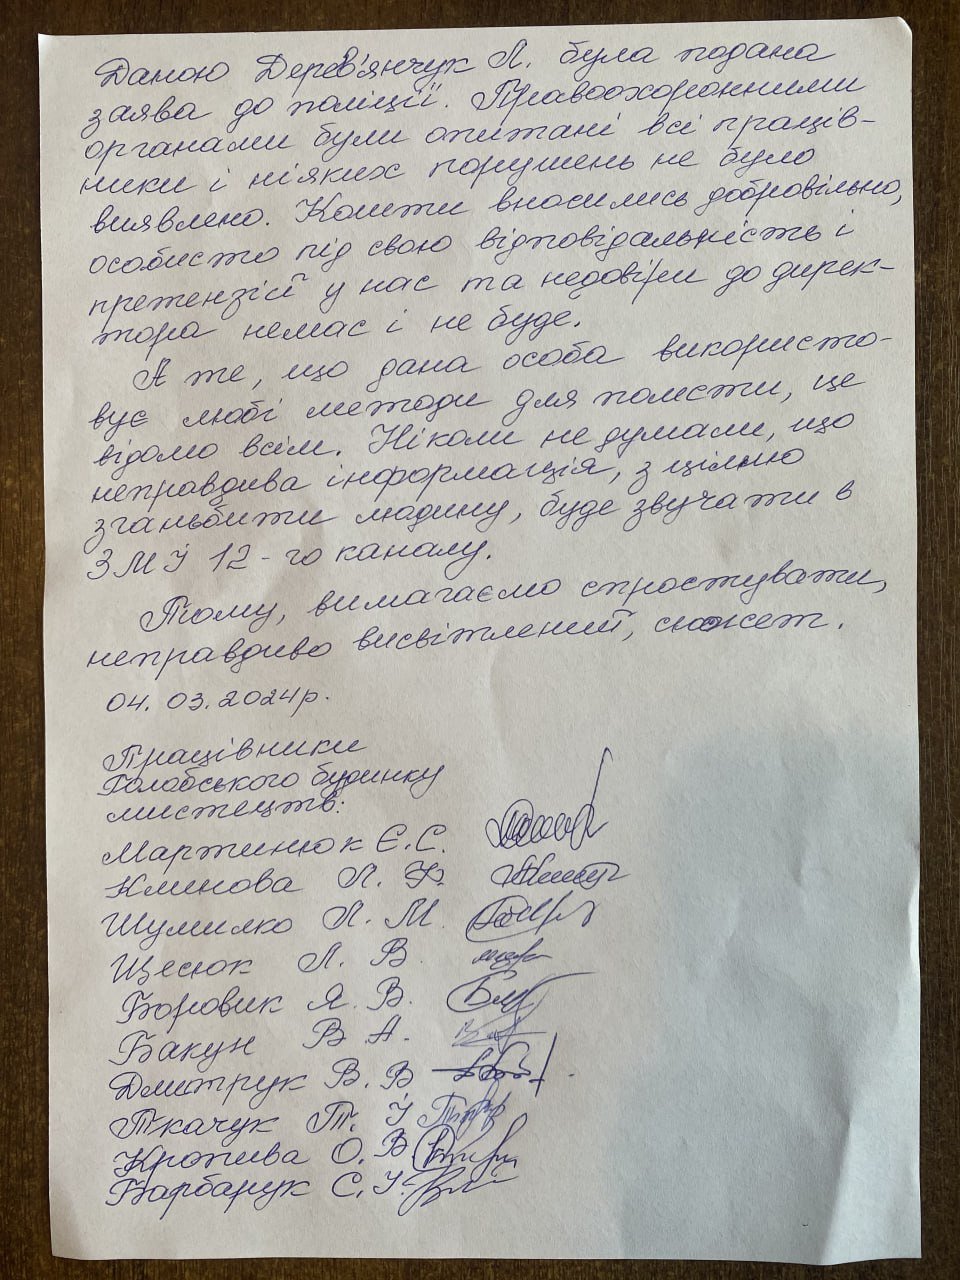 Даною Дерев'янчук Л. була подана
заява до поліції. Правоохоронними
органами були опитані всі праців-
ники і ніяких порушень не було
виявлено. Кошти вносились добровільно,
особисто під свою відповідальність і
претензій у нас та недовіри до дирек-
тора немає і не буде.
А те, що дана особа використо-
вує любі методи для помсти, це
відомо всім. Ніколи не думали, що
неправдива інформація, з ціллю
зганьбити людину, буде звучати в
ЗМІ 12-го каналу.
Тому, вимагаємо спростувати,
неправдиво висвітлений, сюжет.
04.03.2024р.
Працівники
Голобського будинку
мистецтв:
Мартинюк Є.С.
Клинова Л. Ф.
Шумилко Л. М.
Щесюк Л. В.
Боровик Я. В.
Бакун В.А.
Дмитрук В.В
Ткачук Т. І
Кропива О.В
Барбарук С.І.